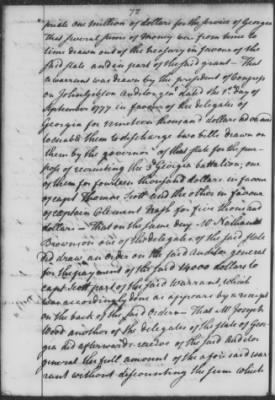 72
"priate one million of dollars for the service of Georgia
that several sums of money were from time to
time drawn out of the treasury in favour of the
said state and in part of the said grant – That
a warrant was drawn by the president of Congress
on John Gibson Auditor genl dated the 1st day of
September 1777 in favour of the delegates of
Georgia for nineteen thousand dollars to
enable them to discharge two bills drawn on
them by the governor of that state for the pur-
pose of recruiting the 3d Georgia battalion; one
of them for fourteen thousand dollars in favour
of capt Thomas Scott and the other in favour
of captain Clement Nash for five thousand
dollars – That on the same day Mr Nathanl
Brownson one of the delegates of the said state
did draw an order on the said Auditor general
for the payment of the said 14000 dollars to
capt Scott part of the said warrant, which
was accordingly done as appears by a receipt
on the back of the said order – That Mr Joseph
Wood another of the delegates of the state of Geor-
gia did afterwards receive of the said auditor
general the full amount of the aforesaid war-
rant without discounting the sum which